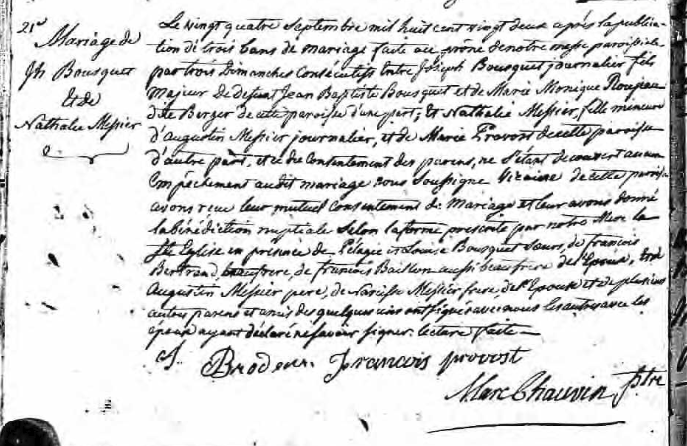 21e
Mariage de
Jh Bousquet
et de
Nathalie Messier
Le vingt quatre Septembre mil huit cent vingt deux après la publica-
tion de trois bans de mariage faite au prône de notre messe paroissiale
par trois Dimanches Consécutifs Entre Joseph Bousquet journalier fils
majeur De defunt Jean Baptiste Bousquet et de Marie Monique Roujeau
dite Berger de cette paroisse d'une part; Et Nathalie Messier, fille mineure
d'Augustin Messier journalier, et de Marie Provost de cette paroisse
d'autre part, et du Consentement des parens, ne s'étant découvert aucun
Empêchement audit mariage nous Soussigné Vicaire de cette paroisse
avons reçu leur mutuel Consentement de Mariage et leur avons donné
la bénédiction nuptiale Selon la forme prescrite par notre Mere la
Ste Eglise en présence de Pélagie et Louise Bousquet Soeurs, de francois
Bertrand, beaufrere, de francois aussi beaufrere de l'Epoux,
Augustin Messier pere, de Narcisse Messier frere de l'Epouse et de plusieurs
autres parens et amis des quelques uns ont signé avec nous les autres avec les
époux ayant déclaré ne savoir signer. lecture faite
J. Brodeur francois provost
Marc Chauvin Ptre